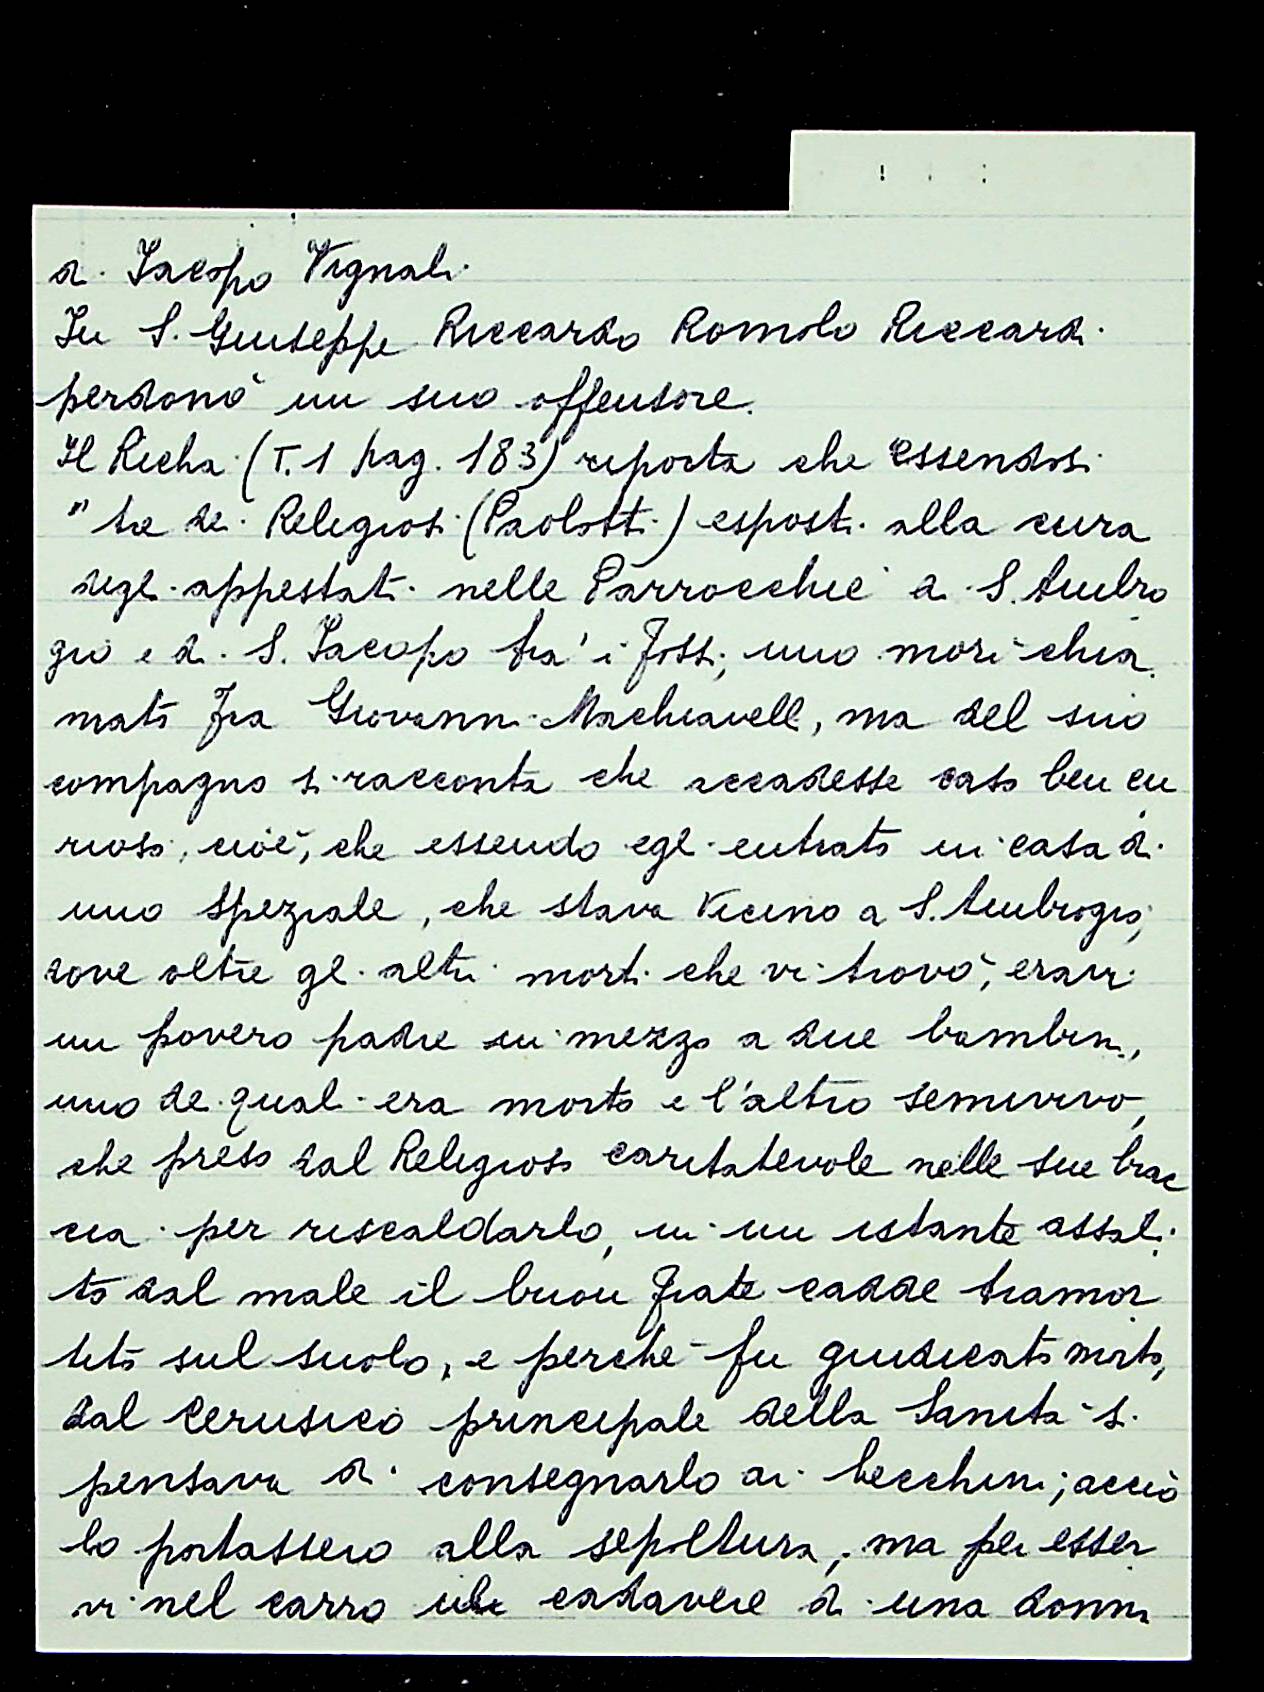 di Jacopo Vignali.
In S. Giuseppe Riccardo Romolo Riccardi
perdonò un suo offensore.
Il Richa (T. 1 pag. 183) riporta che essendosi
"tre dei Religiosi (Paolotti) esposti alla cura
degli appestati nelle Parrocchie di S. Ambro
gio e di S. Jacopo tra' i Fossi, uno morì chia
mato Fra Giovanni Machiavelli, ma del suo
compagno si racconta che accadesse caso ben cu
rioso, cioè, che essendo egli entrato in casa di
uno Speziale, che stava vicino a S. Ambrogio,
dove oltre gli altri morti che vi trovò, eravi
un povero padre in mezzo a due bambini,
uno de quali era morto e l'altro semivivo,
che preso dal Religioso caritatevole nelle sue brac
cia per riscaldarlo, in un istante assali
to dal male il buon Frate cadde tramor
tito sul suolo, e perchè fu giudicato morto,
dal Cerusico principale della Sanità si
pensava di consegnarlo ai becchini; acciò
lo portassero alla sepoltura, ma per esser
vi nel carro cadavere di una donna